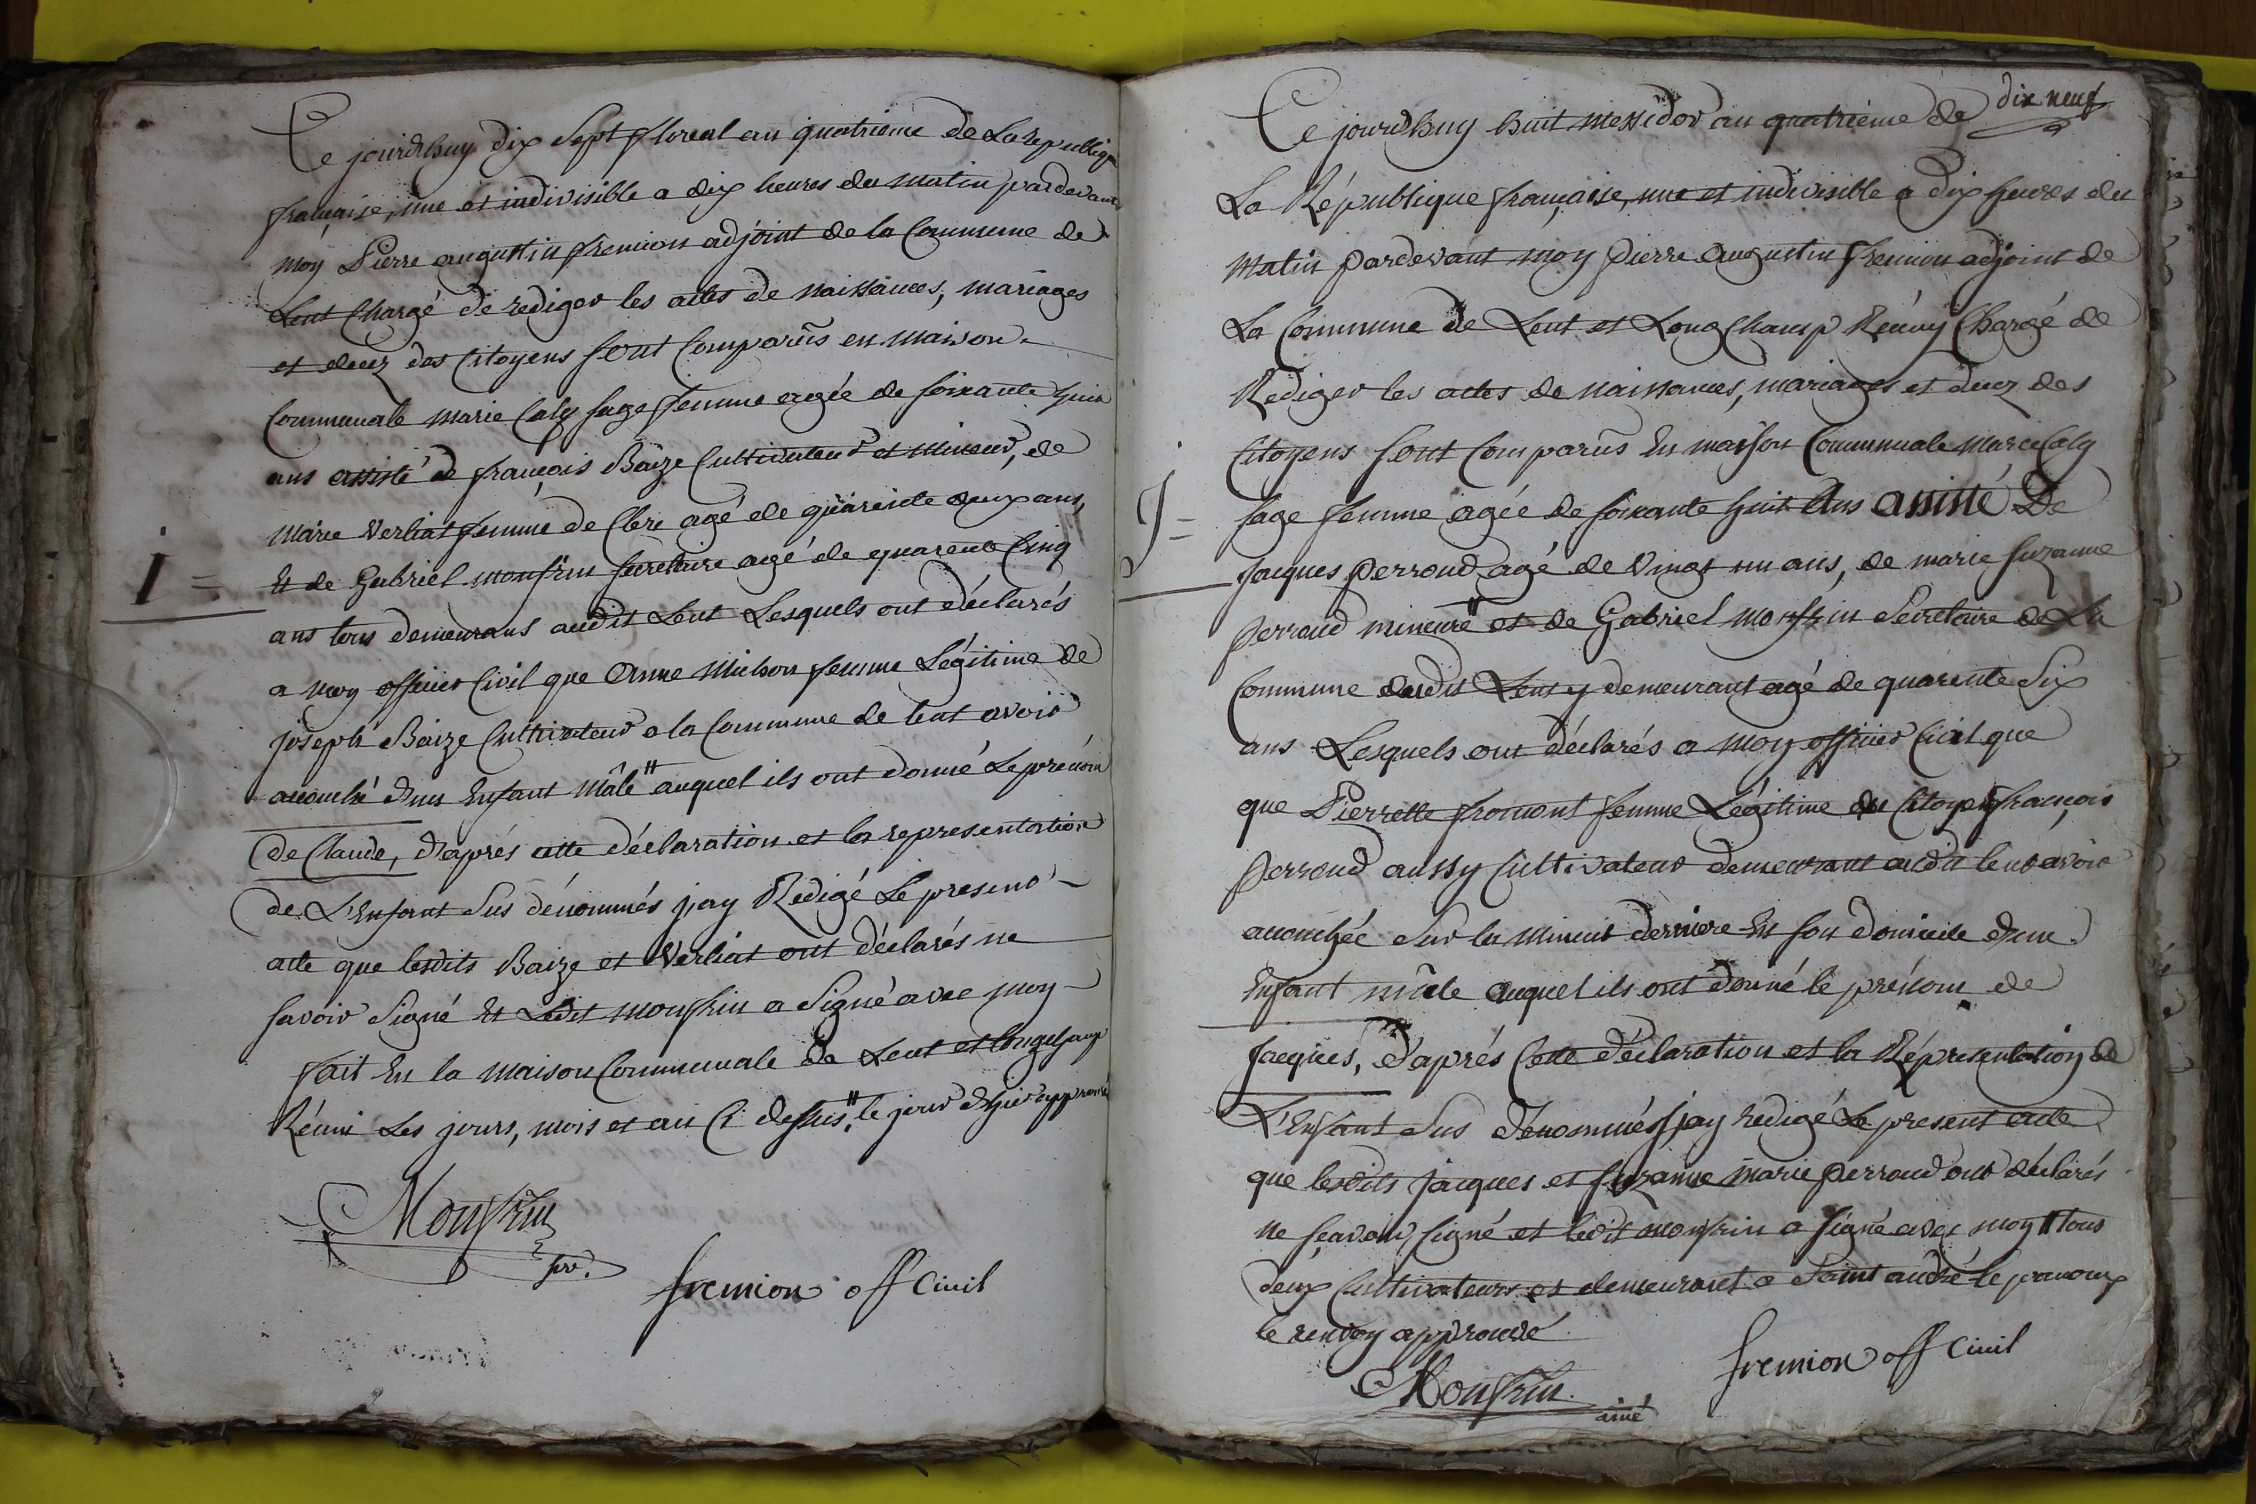 Ce jourd'huy dix Sept floreal an quatrieme de La republique
française, une et indivisible a dix heures du matin pardevant
moy Pierre augustin fremion adjoint de la Commune de
Lent Chargé de rediger les actes de naissances, mariages
et decez des Citoyens sont Comparûs en maison
Communale marie Caly sage femme agée de soixante huit
ans assisté de françois Baize Cultivateur et mineur, de
marie Verliat femme de Clere agé de quarante deux ans,
Et de Gabriel monfrin secretaire agé de quarente Cinq
i =
ans tous demeurans audit Lent Lesquels ont déclarés
a moy officier Civil que Anne Michon femme Légitime de
joseph Baize Cultivateur a la Commune de lent avoir
accouché d'un Enfant mâle # auquel ils ont donné Le prénom
de Claude, d'aprés cette déclaration et la representation
de L'Enfant Sus dénommés j'ay Redigé Le present
acte que lesdits Baize et Verliat ont déclarés ne
savoir Signé Et Ledit monfrin a Signé avec moy
fait En la maison Communale de Lent et longchamp
Réuni Les jours, mois et an Ci dessus, # le jour d'hier approuvé
Monfrin
sre.
fremion off Civil
dix neuf
Ce jourd'huy huit messidor an quatrième de
La République française, une et indivisible a dix heures du
matin pardevant moy Pierre augustin fremion adjoint de
La Commune de Lent et Long Champ Réuny Chargé de
Rediger les actes de naissances, mariages et decez des
Citoyens sont Comparûs En maison Communale marie Caly
J =
sage femme agée de soixante huit Ans assisté De
Jacques perroud agé de vingt un ans, de marie suzanne
perroud mineure # et de Gabriel monfrin Secretaire de La
Commune dudit Lent y demeurant agé de quarente Six
ans Lesquels ont déclarés a moy officier Civil que
que Pierrette fromont femme Légitime du Citoyen françois
perroud aussy Cultivateur demeurant audit lent avoir
accouchée Sur la minuit derniere En son domicile d'un
Enfant mâle auquel ils ont donné le prénom de
Jacques, d'aprés Cette déclaration et la Représentation de
L'Enfant Sus dénommés j'ay redigé Le present acte
que lesdits jacques et suzanne marie perroud ont déclarés
ne sçavoir signé et ledit monfrin a signé avec moy # tous
deux Cultivateurs et demeurant a Saint andré le panoux
le renvoy approuvé
Monfrin
ainé
fremion off Civil